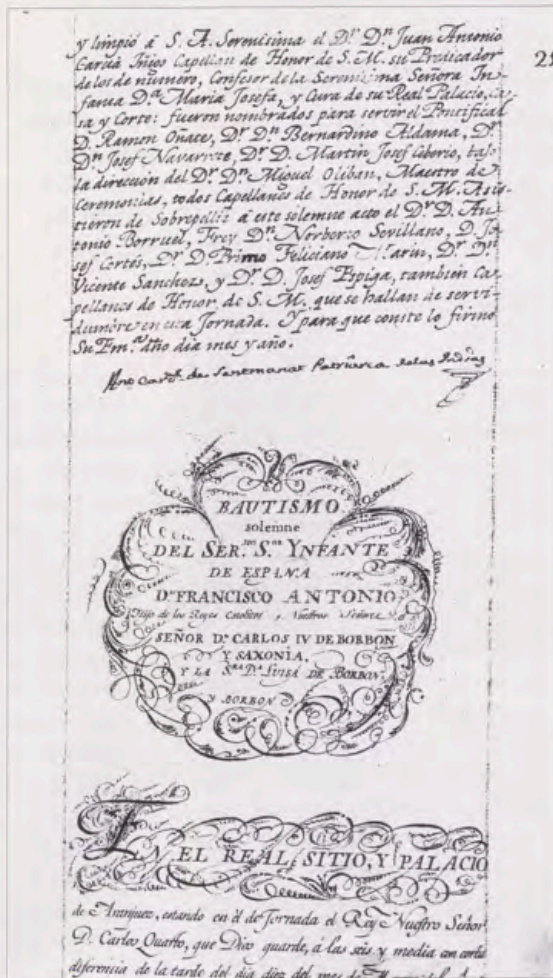 y limpió á S. A. Serenisima el Dr. Dn. Juan Antonio
Garcia Capellan de Honor de S. M. su Predicador
de los de numero, Confesor de la Serenisima Señora In-
fanta Da. Maria Josefa, y Cura de su Real Palacio, Ca-
sa y Corte: fueron nombrados para servir el Pontifical
D. Ramon Oñate, Dr. Dn. Bernardino Aldama, Dr.
Dn. Josef Navarrete, Dr. D. Martin Josef bajo
la direccion del Dr. Dn. Miguel Oliban, Maestro de
Ceremonias, todos Capellanes de Honor de S. M. Asis-
tieron de Sobrepelliz á este solemne acto el Dr. D. An-
tonio Borruel, Frey Dn. Norberto Sevillano, D. Jo-
sef Cortés, Dr. D. Primo Feliciano Marin, Dr. Dn.
Vicente Sanchez, y Dr. D. Josef Espiga, tambien Ca-
pellanes de Honor de S. M. que se hallan de servi-
dumbre en esta Jornada. Y para que conste lo firmó
Su Em.a dho dia mes y año.
Card. de Sentmanat Patriarca de las Indias
BAUTISMO
solemne
DEL SER.mo S.or YNFANTE
DE ESPAÑA
Dn. FRANCISCO ANTONIO
Hijo de los Reyes Catolicos y Nuestros Señores
SEÑOR Dn. CARLOS IV DE BORBON
Y SAXONIA,
Y LA S.RA Da. LUISA DE BORBON
Y BORBON
EN EL REAL SITIO, Y PALACIO
de Aranjuez, estando en él de Jornada el Rey Nuestro Señor
D. Carlos Quarto, que Dios guarde, á las seis y media con corta
diferencia de la tarde del dia diez del mes de